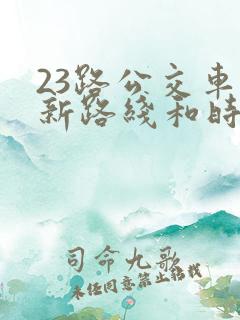 23路公交车
新路綫和时
司命九歌
未经同意禁止转载